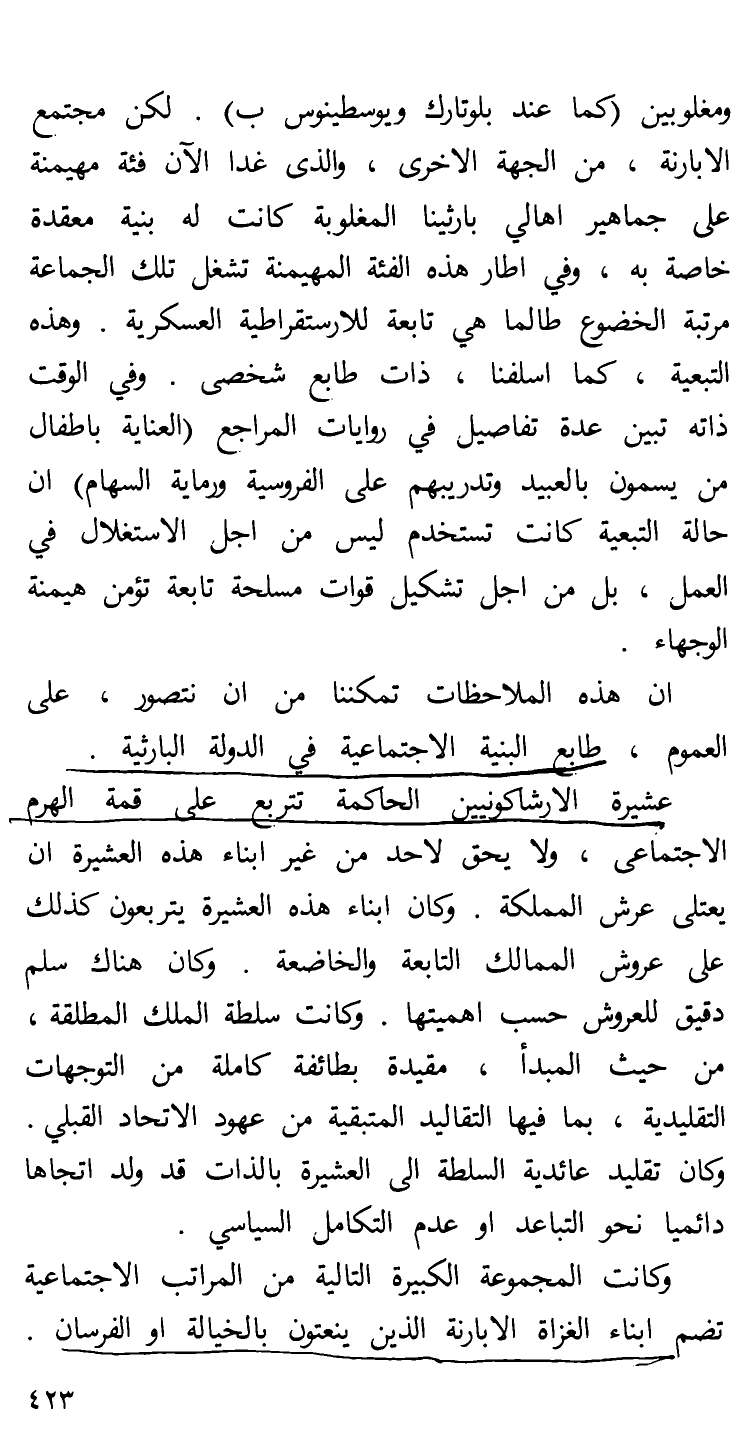 ومغلوبين (كما عند بلوتارك ويوسطينوس ب) . لكن مجتمع
الابارنة ، من الجهة الاخرى ، والذى غدا الآن فئة مهيمنة
على جماهير اهالي بارثينا المغلوبة كانت له بنية معقدة
خاصة به ، وفي اطار هذه الفئة المهيمنة تشغل تلك الجماعة
مرتبة الخضوع طالما هي تابعة للارستقراطية العسكرية . وهذه
التبعية ، كما اسلفنا ، ذات طابع شخصى . وفي الوقت
ذاته تبين عدة تفاصيل في روايات المراجع (العناية باطفال
من يسمون بالعبيد وتدريبهم على الفروسية ورماية السهام) ان
حالة التبعية كانت تستخدم ليس من اجل الاستغلال في
العمل ، بل من اجل تشكيل قوات مسلحة تابعة تؤمن هيمنة
الوجهاء .
ان هذه الملاحظات تمكننا من ان نتصور ، على
العموم ، طابع البنية الاجتماعية في الدولة البارثية .
عشيرة الارشاكونيين الحاكمة تتربع على قمة الهرم
الاجتماعى ، ولا يحق لاحد من غير ابناء هذه العشيرة ان
يعتلى عرش المملكة . وكان ابناء هذه العشيرة يتربعون كذلك
على عروش الممالك التابعة والخاضعة . وكان هناك سلم
دقيق للعروش حسب اهميتها . وكانت سلطة الملك المطلقة ،
من حيث المبدأ ، مقيدة بطائفة كاملة من التوجهات
التقليدية ، بما فيها التقاليد المتبقية من عهود الاتحاد القبلي .
وكان تقليد عائدية السلطة الى العشيرة بالذات قد ولد اتجاها
دائميا نحو التباعد او عدم التكامل السياسي .
وكانت المجموعة الكبيرة التالية من المراتب الاجتماعية
تضم ابناء الغزاة الابارنة الذين ينعتون بالخيالة او الفرسان .
٤٢٣